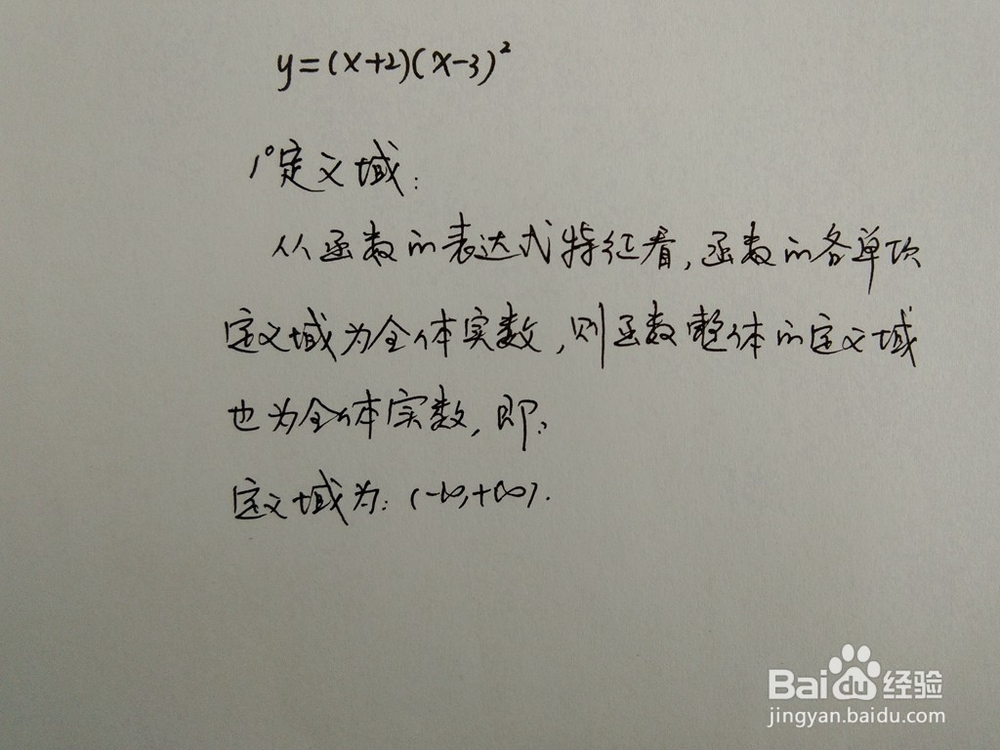 y=(x+2)(x-3)²
1°定义域:
从函数的表达式特征看,函数的各单项
定义域为全体实数,则函数整体的定义域
也为全体实数,即:
定义域为:(-∞,+∞).
Baidu经验
jingyan.baidu.com